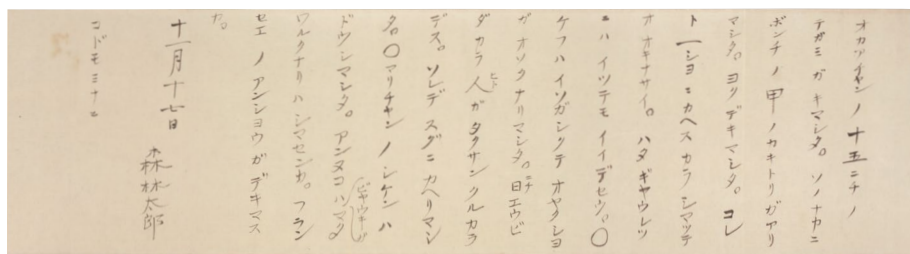 オカアチヤンノ十五ニチノ
テガミガキマシタ。ソノナカニ
ボンチノ甲ノカキトリガアリ
マシタ。ヨクデキマシタ。コレ
ト一シヨニカヘスカラシマツテ
オオキナサイ。ハタギヤウレツ
ニハイツテモイイデセウ。〇
ケフハイソガシクテオヤクシヨ
ガオソクナリマシタ。日エウビ
ニチ
ダカラ人ガタクサンクルカラ
ヒト
デス。ソレデスグニカヘリマシ
タ。〇マリチヤンノシケンハ
ドウシマシタ。アンヌコハマタ
ビヤウキガ
ワルクナリハシマセンカ。フラン
セエノアンシヨウガデキマス
カ。
十一月十七日
森林太郎
コドモミナニ